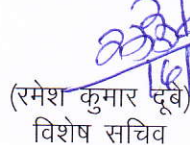 (रमेश कुमार दूबे)
विशेष सचिव